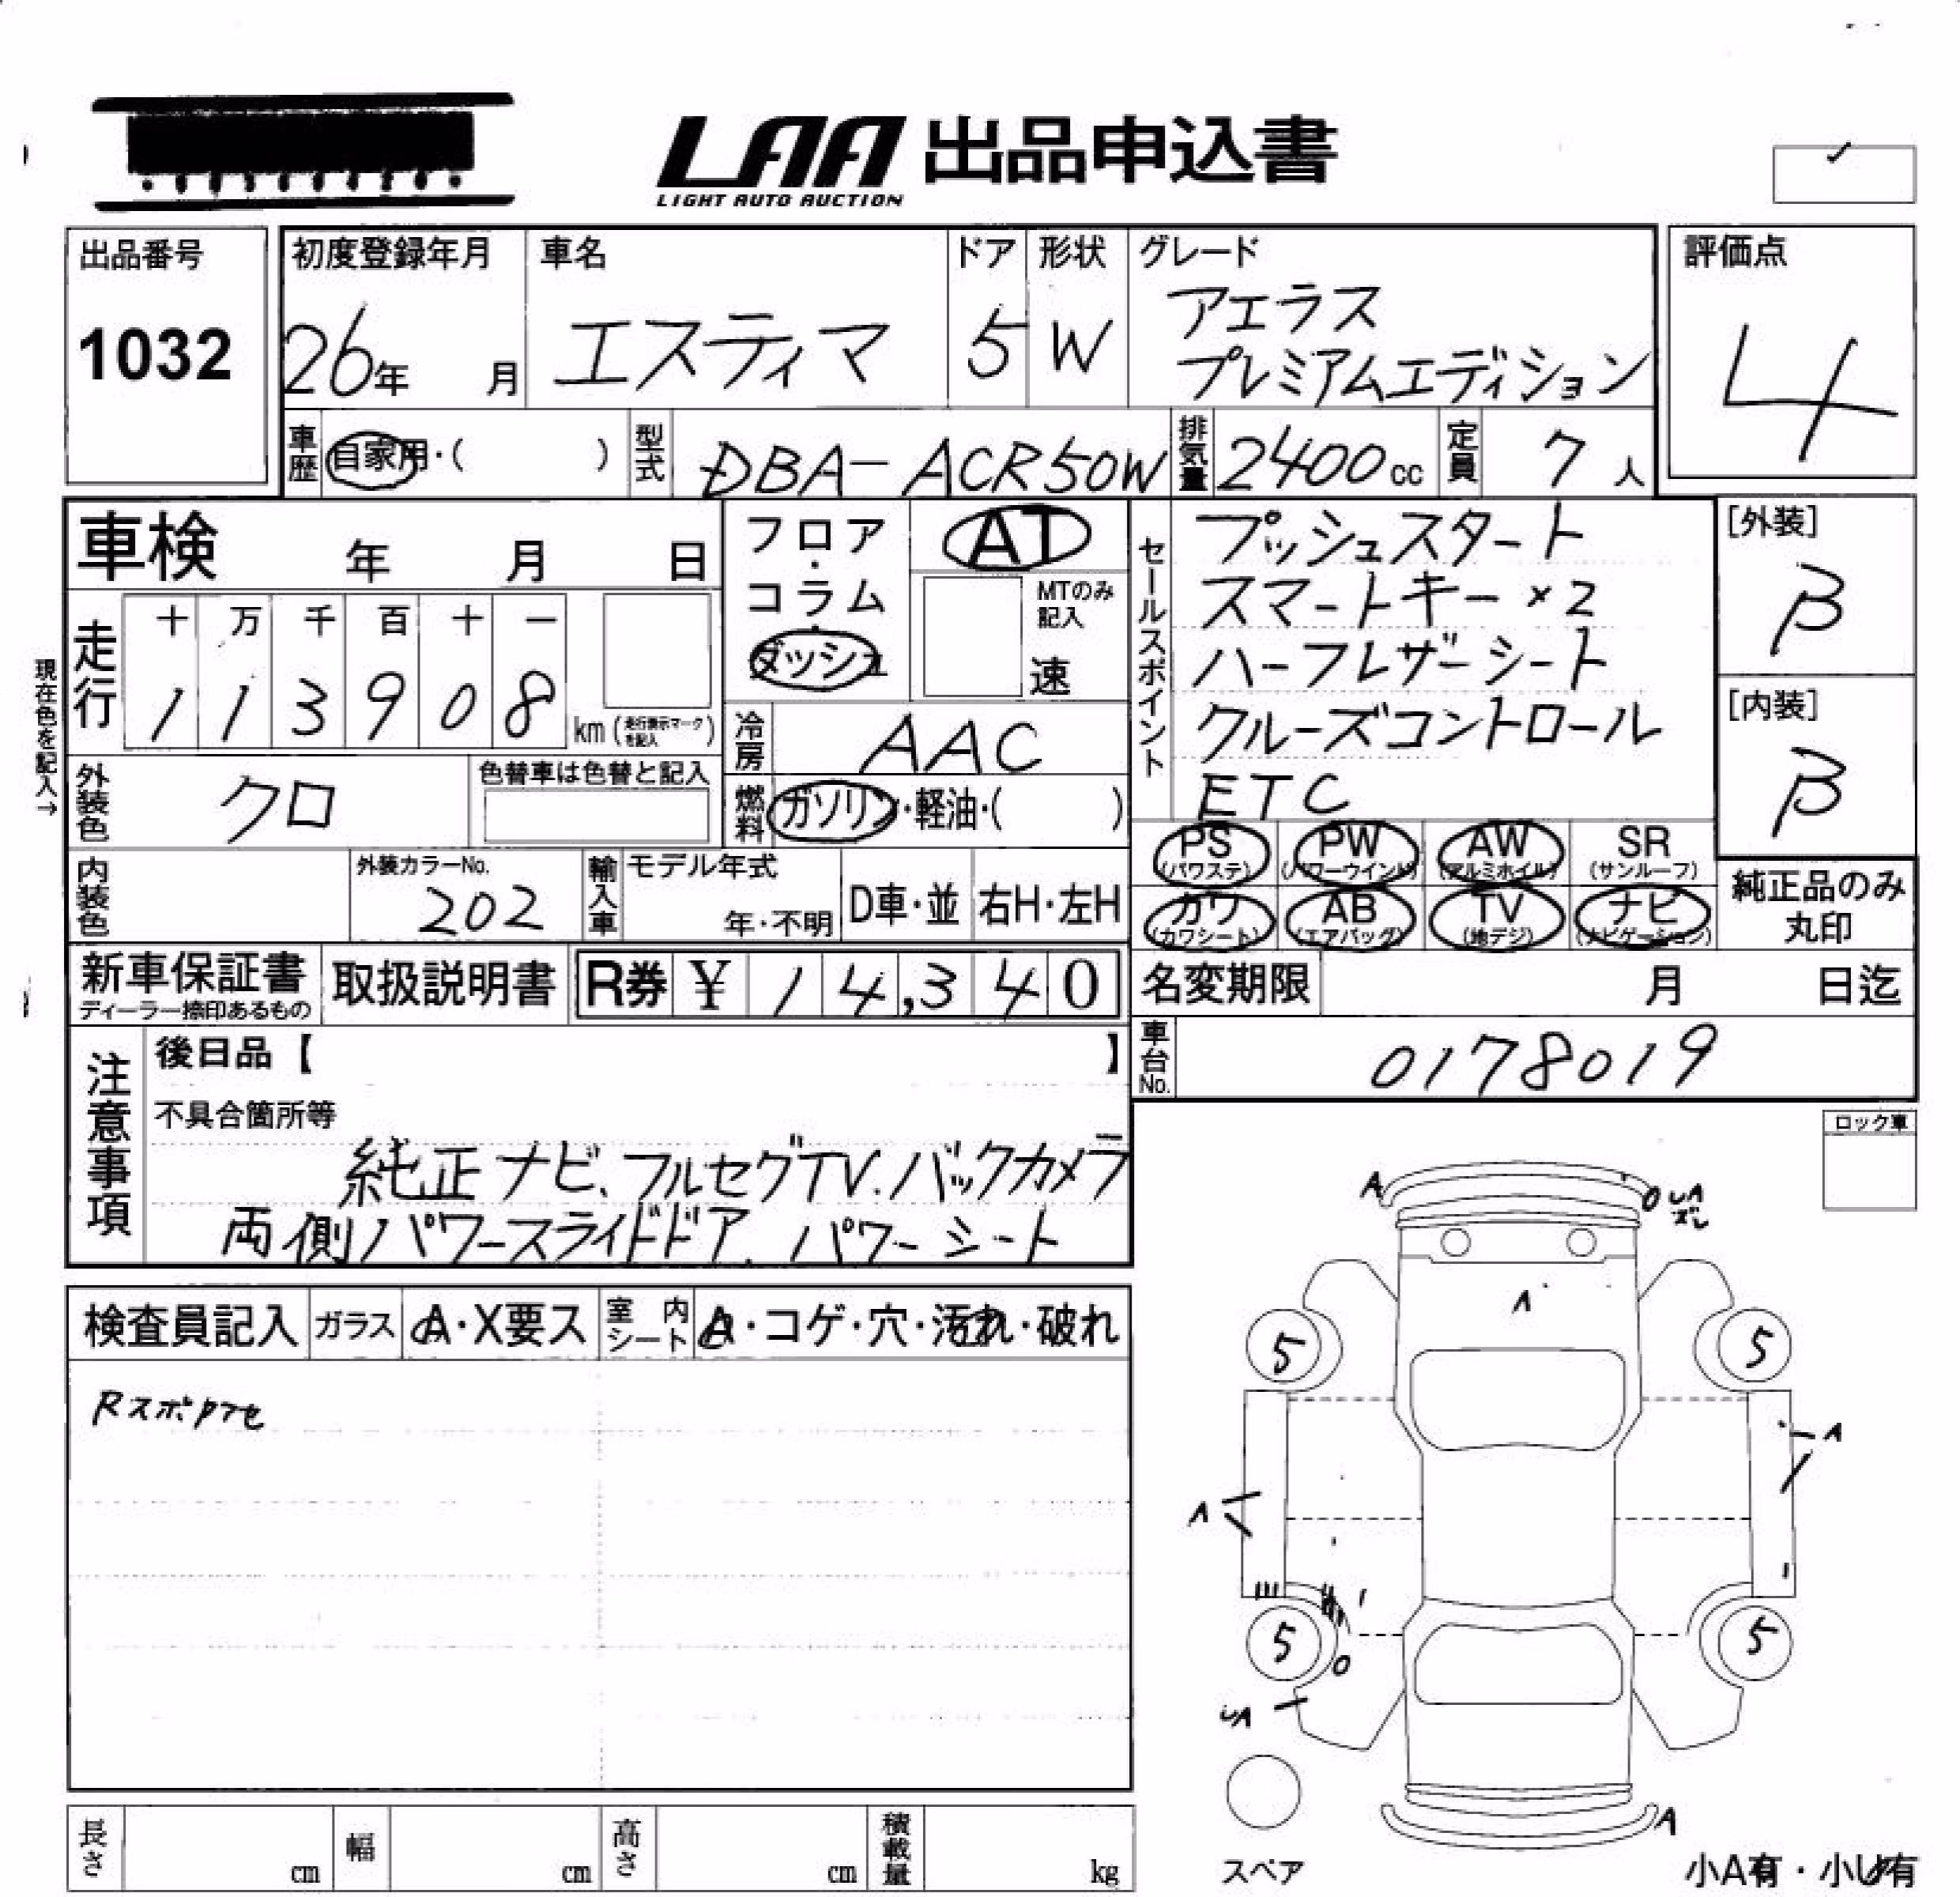 LAA 出品申込書
LIGHT AUTO AUCTION
出品番号
1032
初度登録年月
26年 月
車名
エスティマ
ドア
5
形状
W
グレード
アエラス
プレミアムエディション
評価点
4
車歴 自家用・( )
型式 DBA-ACR50W
排気量 2400cc
定員 7人
車検 年 月 日
現在色を記入→
走行
十 万 千 百 十 一
1 1 3 9 0 8 km (走行表示マークを記入)
フロア・コラム・ダッシュ
AT
MTのみ記入
速
冷房 AAC
燃料 ガソリン・軽油・( )
外装色 クロ
色替車は色替と記入
内装色
外装カラーNo.
202
輸入車 モデル年式
年・不明
D車・並
右H・左H
セールスポイント
プッシュスタート
スマートキー×2
ハーフレザーシート
クルーズコントロール
ETC
[外装]
β
[内装]
β
PS (パワステ) PW (パワーウインド) AW (アルミホイル) SR (サンルーフ)
カワ (カワシート) AB (エアバッグ) TV (地デジ) ナビ (ナビゲーション)
純正品のみ丸印
新車保証書
ディーラー捺印あるもの
取扱説明書
R券 ¥ 14,340
名変期限 月 日迄
車台No. 0178019
注意事項
後日品【 】
不具合箇所等
純正ナビ、フルセグTV.バックカメラ
両側パワースライドドア、パワーシート
ロック車
検査員記入 ガラス A・X要ス 室内シート A・コゲ・穴・汚れ・破れ
A
A
ズレ
A
5 5
A
A
5 5
A
スペア
長さ cm 幅 cm 高さ cm 積載量 kg
小A有・小U有